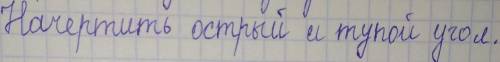 Начертить острый и тупой угол.